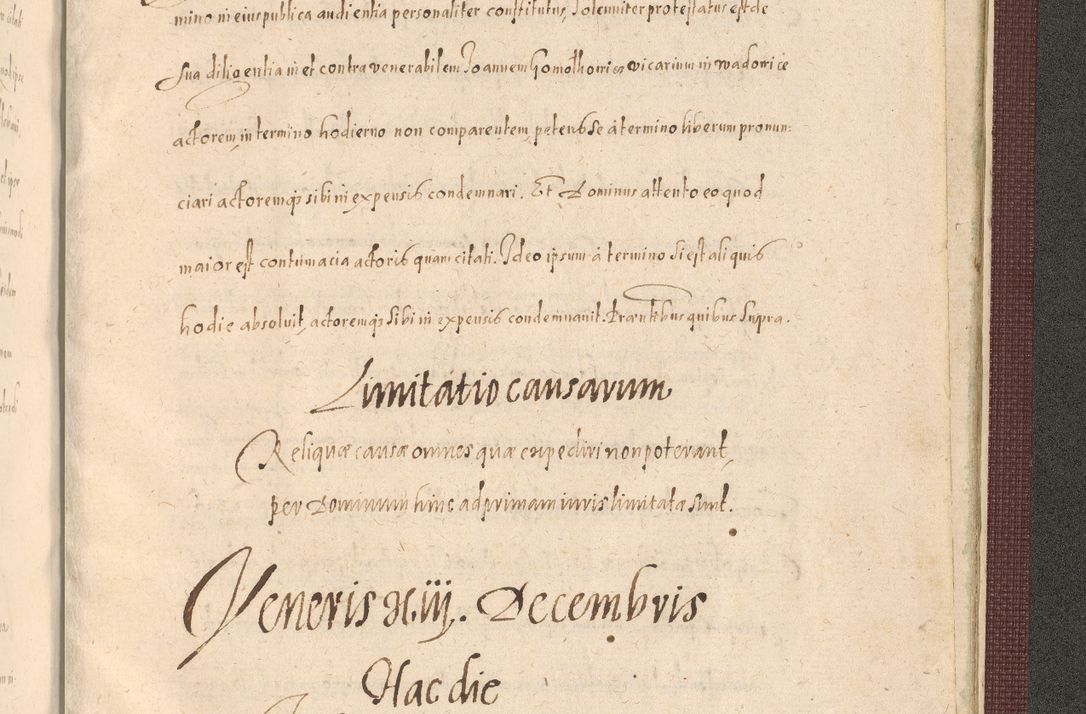 mino in eius publica audientia personaliter constitutus, Solenniter protestatus est de
sua diligentia in et contra venerabilem Joannem vicarium in wadowice
actorem in termino hodierno non comparentem petens se à termino liberum pronun:
ciari actoremq3 sibi in expensis condemnari. Et Dominus attento eo quod
maior est contumacia actoris quam citati. Ideo ipsum à termino si est aliquis
hodie absolvit, actoremq3 sibi in expensis condemnavit. Praentibus quibus Supra.
Limitatio causarum
Reliquæ causæ omnes quæ expediri non poterant,
per Dominum hinc ad primam iuris limitatæ sunt.
Veneris xiij. Decembris
Hac die